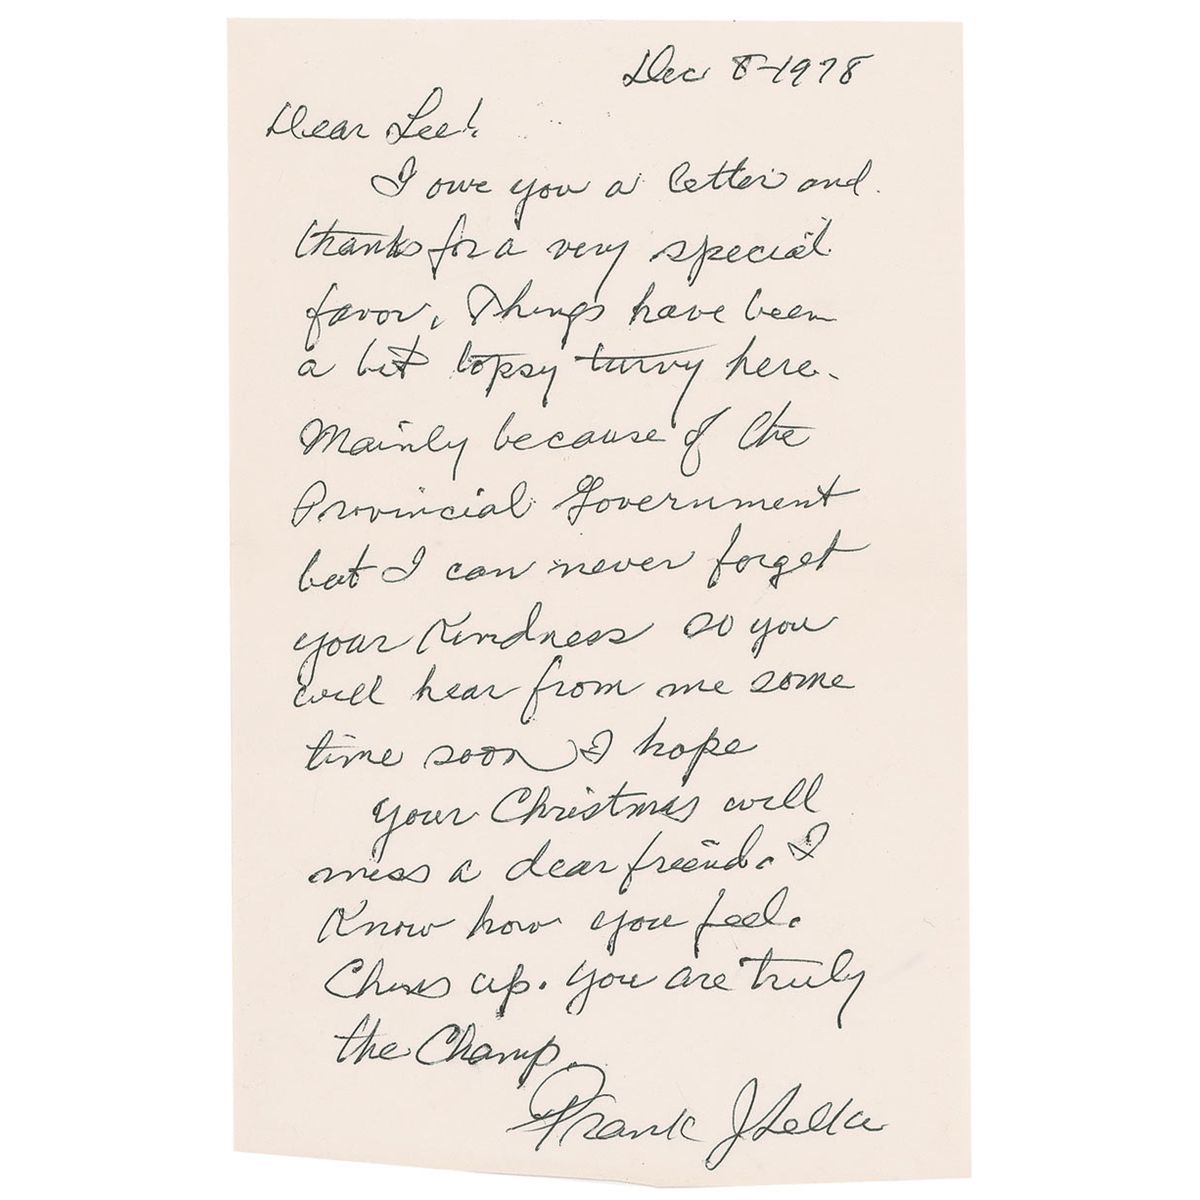 Dec 8-1978
Dear Lee!
I owe you a letter and
thanks for a very special
favor. Things have been
a bit topsy turvy here.
Mainly because of the
Provincial Government
but I can never forget
your Kindness so you
will hear from me some
time soon I hope
Your Christmas will
miss a dear friend. I
Know how you feel.
up. You are truly
the Champ.
Frank J Selke